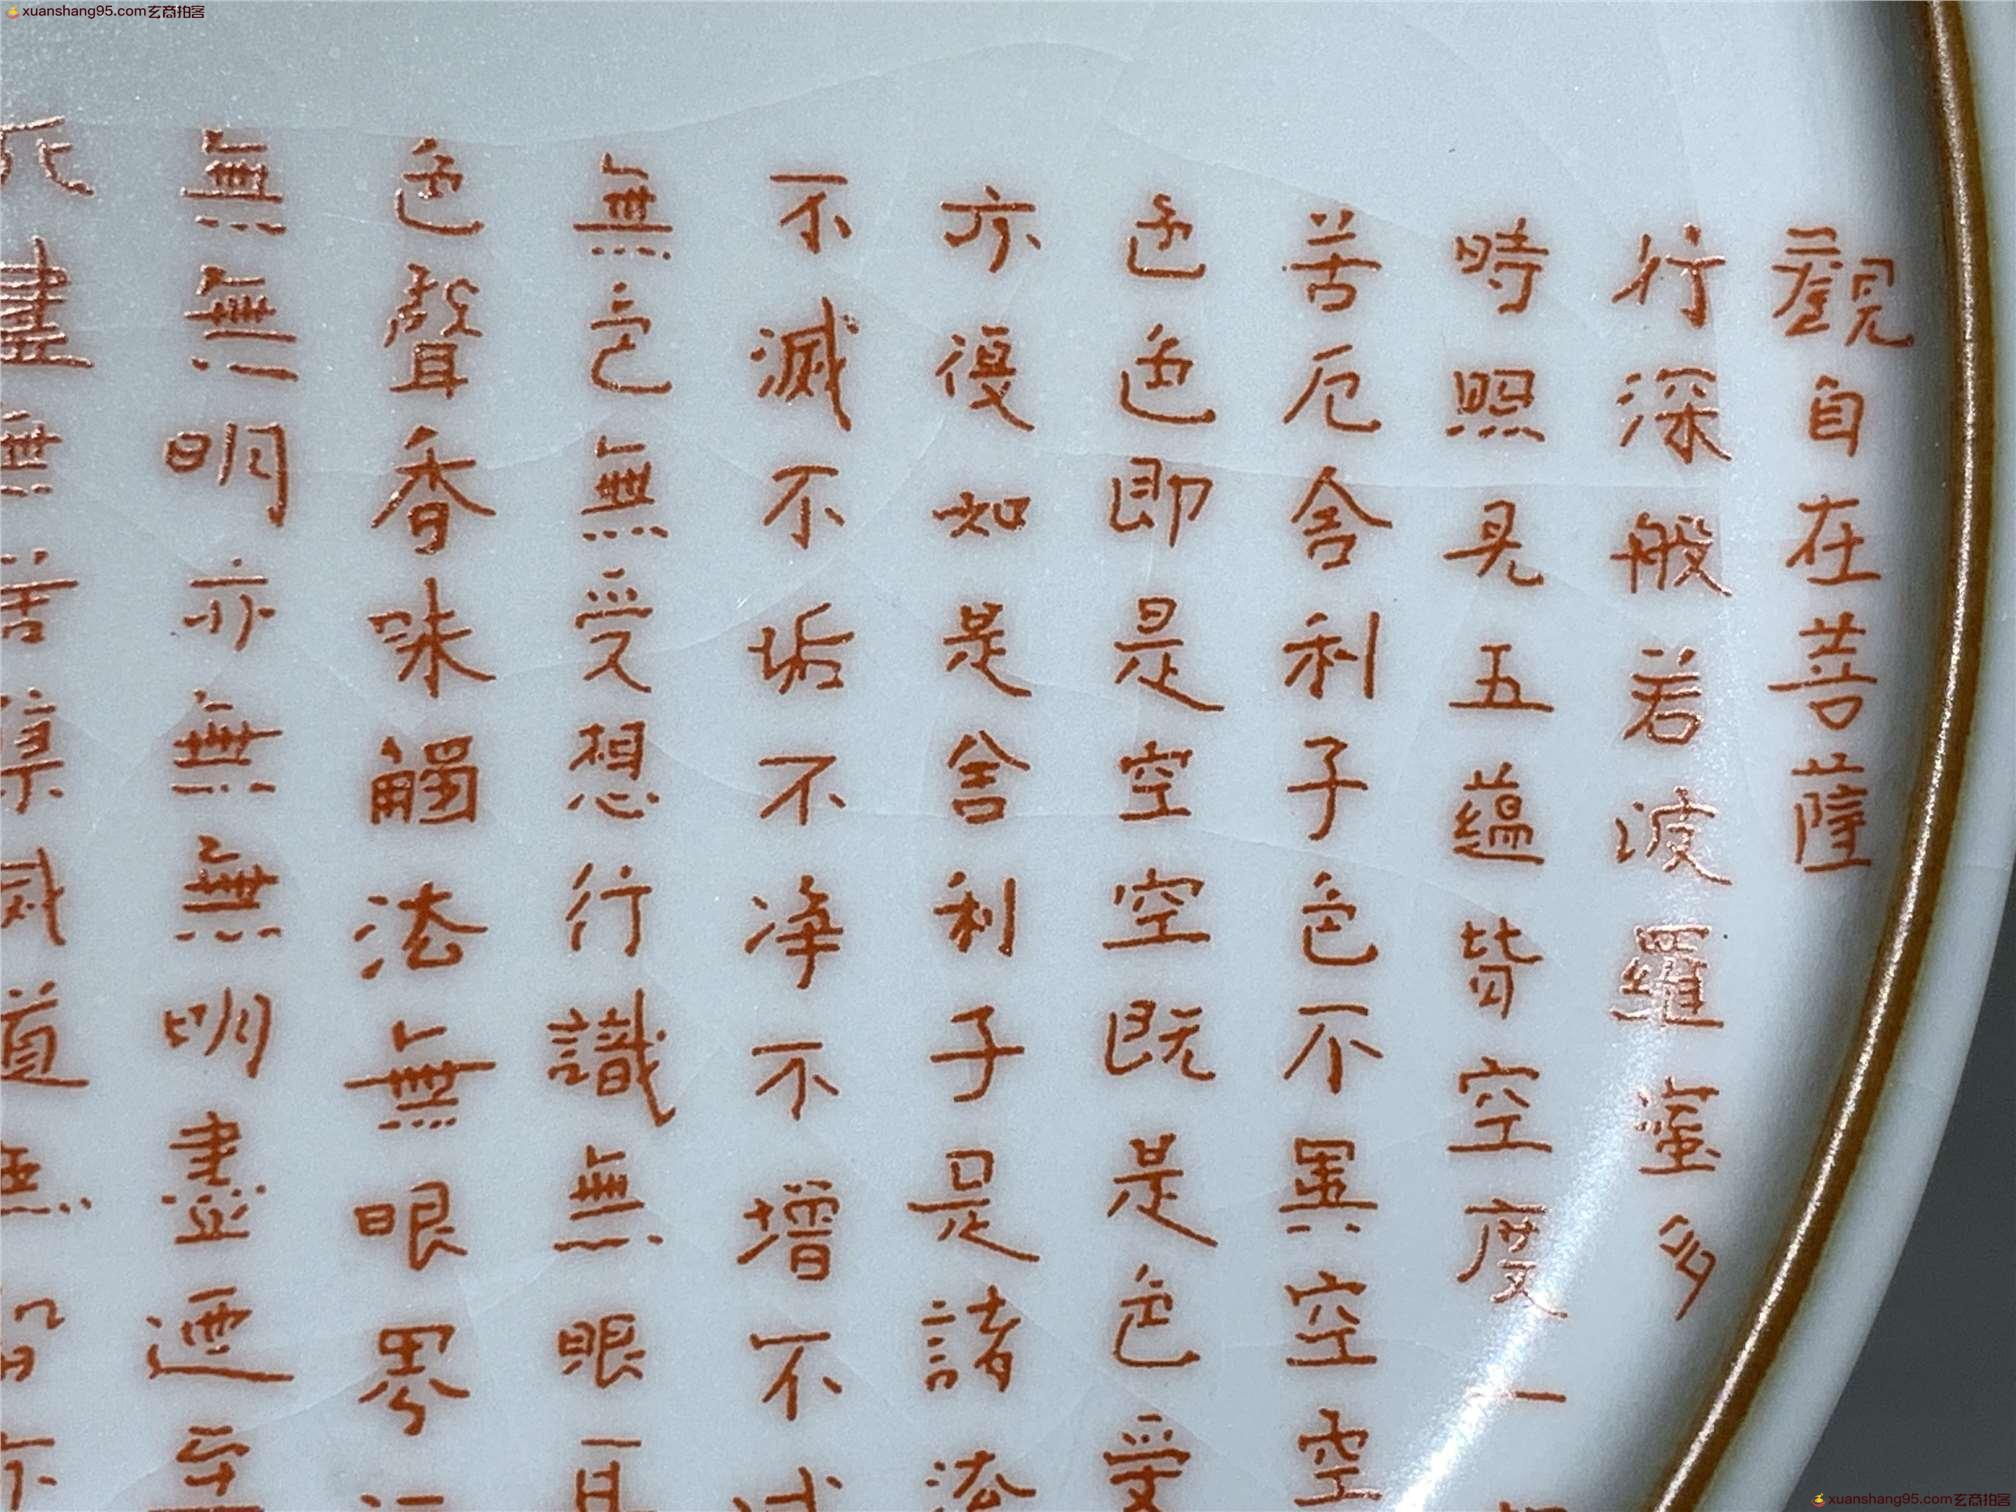 xuanshang95.com玄商拍客
觀自在菩薩
行深般若波羅蜜多
時照見五蘊皆空度一
苦厄舍利子色不異空空
色色即是空空既是色受
亦復如是舍利子是諸法
不滅不垢不净不增不
無色無受想行識無眼耳
色聲香味觸法無眼界
無無明亦無無明盡迺至
死盡無苦集滅道無智亦
xuanshang95.com玄商拍客